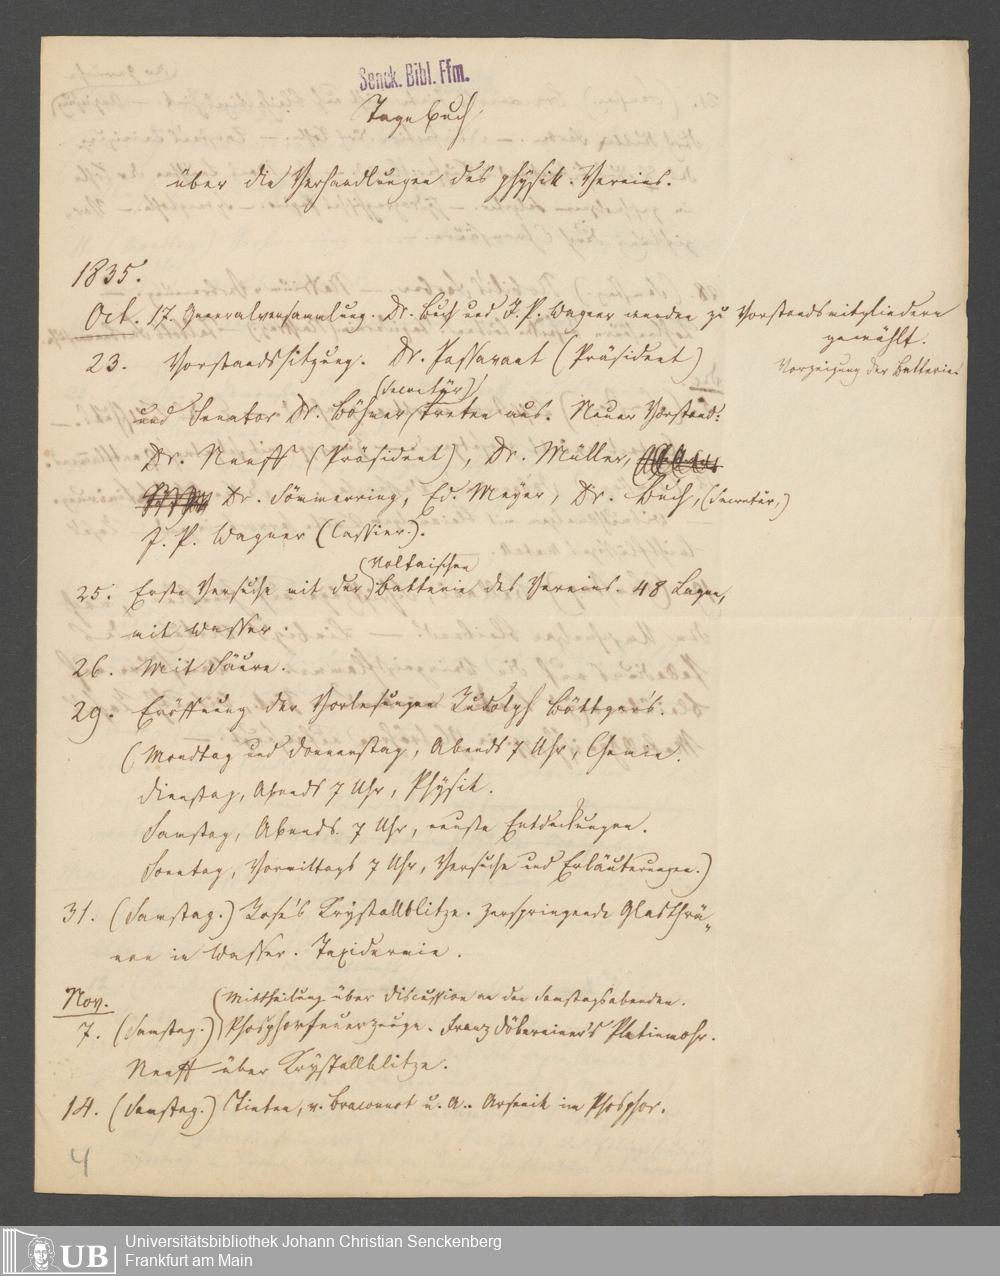 Senck. Bibl. Ffm.
Tagebuch
über die Verhandlungen des physik. Vereins.
1835.
Oct. 17. Generalversammlung. Dr. Buch und J. P. Wagner werden zu Vorstandsmitgliedern
gewählt.
23. Vorstandssitzung. Dr. Passavant (Präsident)
Vorzeigung der Batterie.
(Secretär)
und Senator Dr. Böhmer treten aus. Neuer Vorstand:
Dr. Neeff (Präsident), Dr. Müller,
Dr. Sömmerring, Ed. Meyer, Dr. Buch, (Secretär,)
J. P. Wagner (Cassier.).
Voltaischen
25. Erste Versuche mit der Batterie des Vereins. 48 Lagen,
mit Wasser.
26. Mit Säure.
29. Eröffnung der Vorlesungen Rudolph Böttger's.
(Mondtag und Donnerstag, Abends 7 Uhr, Chemie.
Dienstag, Abends 7 Uhr, Physik.
Samstag, Abends 7 Uhr, neuste Entdeckungen.
Sonntag, Vormittags 7 Uhr, Versuche und Erläuterungen.)
31. (Samstag.) Rose's Krystallblitze. Zerspringende Glasthrä-
nen in Wasser. Taxidermie.
Nov.
Mittheilung über Discussion an den Samstagsabenden.
7. (Samstag.) Phosphorfeuerzeuge. Franz Döbereiner's Platinmohr.
Neeff über Krystallblitze.
14. (Samstag.) Tinten, v. Braconnot u. A. Arsenik im Phosphor.
4
UB
Universitätsbibliothek Johann Christian Senckenberg
Frankfurt am Main